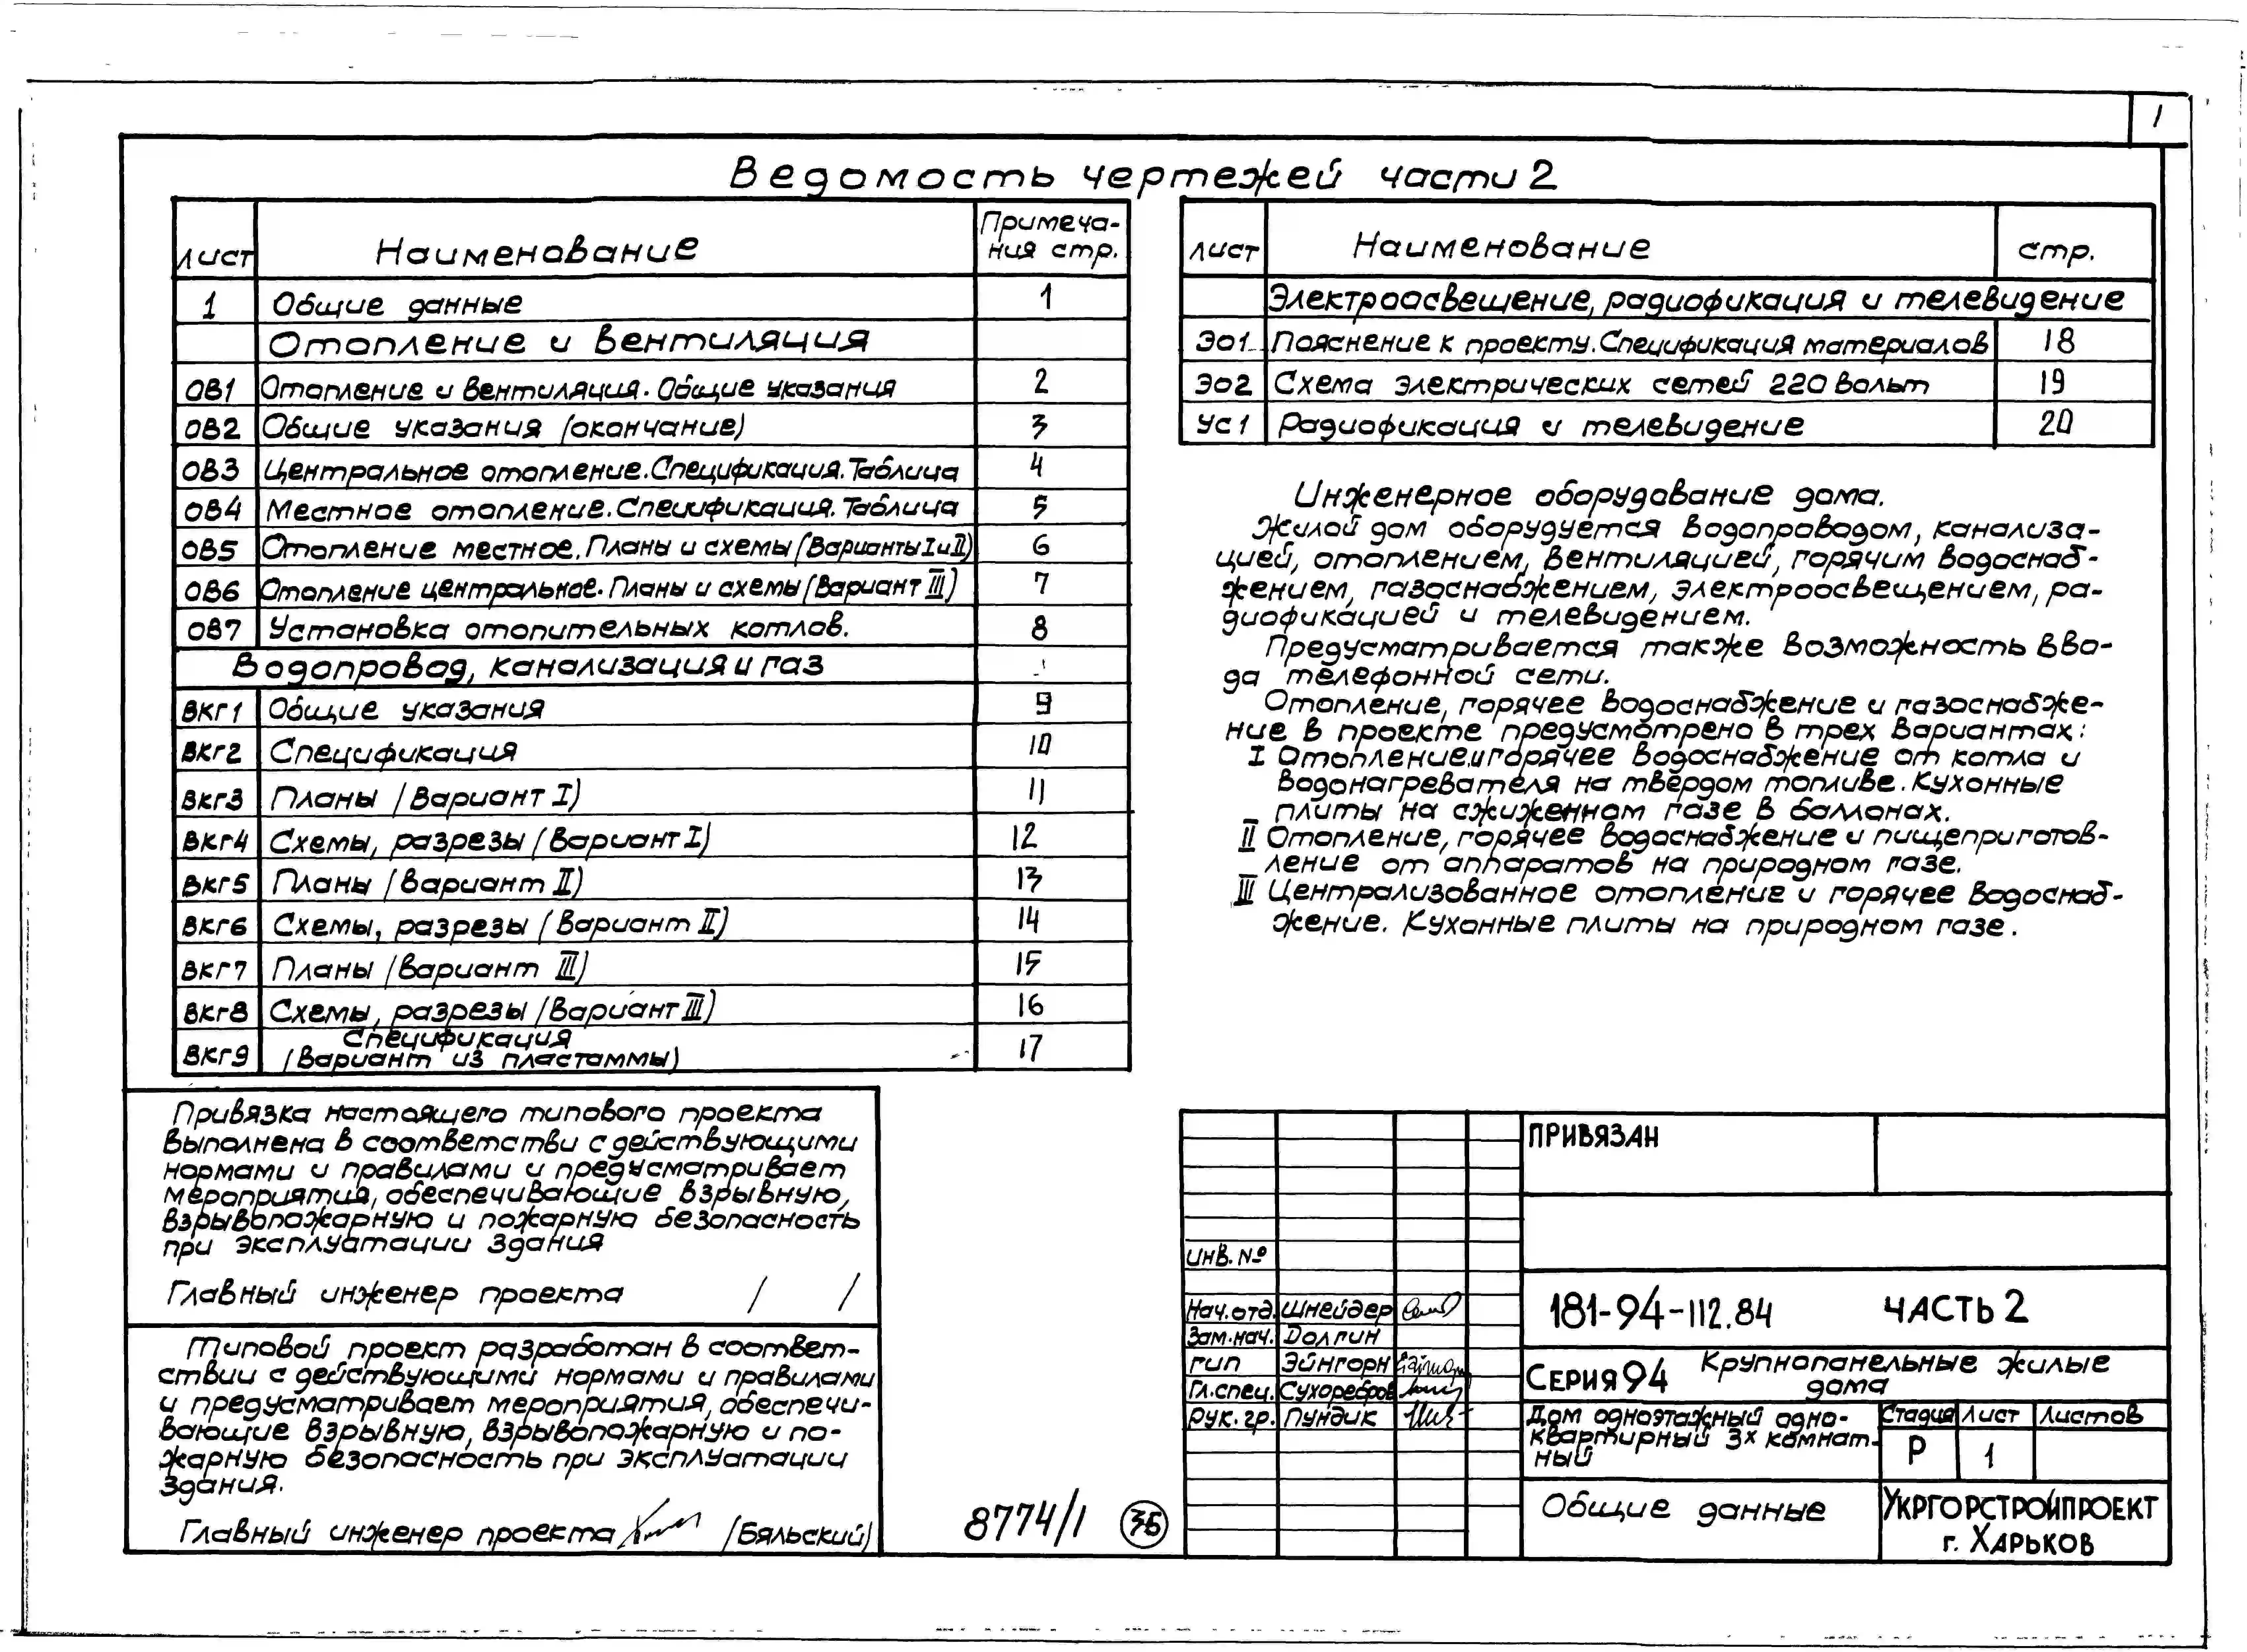 1
Ведомость чертежей части 2
Лист Наименование Примеча-
ния стр.
1 Общие данные 1
Отопление и вентиляция
ОВ1 Отопление и вентиляция. Общие указания 2
ОВ2 Общие указания (окончание) 3
ОВ3 Центральное отопление. Спецификация. Таблица 4
ОВ4 Местное отопление. Спецификация. Таблица 5
ОВ5 Отопление местное. Планы и схемы (Варианты I и II) 6
ОВ6 Отопление центральное. Планы и схемы (Вариант III) 7
ОВ7 Установка отопительных котлов. 8
Водопровод, канализация и газ
ВКГ1 Общие указания 9
ВКГ2 Спецификация 10
ВКГ3 Планы (Вариант I) 11
ВКГ4 Схемы, разрезы (Вариант I) 12
ВКГ5 Планы (Вариант II) 13
ВКГ6 Схемы, разрезы (Вариант II) 14
ВКГ7 Планы (Вариант III) 15
ВКГ8 Схемы, разрезы (Вариант III) 16
ВКГ9 Спецификация
(Вариант из пластаммы) 17
Лист Наименование стр.
Электроосвещение, радиофикация и телевидение
ЭО1 Пояснение к проекту. Спецификация материалов 18
ЭО2 Схема электрических сетей 220 вольт 19
УС1 Радиофикация и телевидение 20
Инженерное оборудование дома.
Жилой дом оборудуется водопроводом, канализа-
цией, отоплением, вентиляцией, горячим водоснаб-
жением, газоснабжением, электроосвещением, ра-
диофикацией и телевидением.
Предусматривается также возможность вво-
да телефонной сети.
Отопление, горячее водоснабжение и газоснабже-
ние в проекте предусмотрено в трех вариантах:
I Отопление и горячее водоснабжение от котла и
водонагревателя на твёрдом топливе. Кухонные
плиты на сжиженном газе в баллонах.
II Отопление, горячее водоснабжение и пищеприготов-
ление от аппаратов на природном газе.
III Централизованное отопление и горячее водоснаб-
жение. Кухонные плиты на природном газе.
Привязка настоящего типового проекта
выполнена в соответстви с действующими
нормами и правилами и предусматривает
мероприятия, обеспечивающие взрывную,
взрывопожарную и пожарную безопасность
при эксплуатации здания
Главный инженер проекта / /
Типовой проект разработан в соответ-
ствии с действующими нормами и правилами
и предусматривает мероприятия, обеспечи-
вающие взрывную, взрывопожарную и по-
жарную безопасность при эксплуатации
здания.
Главный инженер проекта (Бяльский)
8774/1 36
ПРИВЯЗАН
ИНВ. №
Нач.отд. Шнейдер
Зам.нач. Долгин
ГИП Эйнгорн
Гл.спец. Сухоребров
Рук. гр. Пундик
181-94-112.84 ЧАСТЬ 2
СЕРИЯ 94 Крупнопанельные жилые
дома
Дом одноэтажный одно-
квартирный 3х комнат-
ный
Стадия Лист Листов
Р 1
Общие данные
УКРГОРСТРОЙПРОЕКТ
г. ХАРЬКОВ